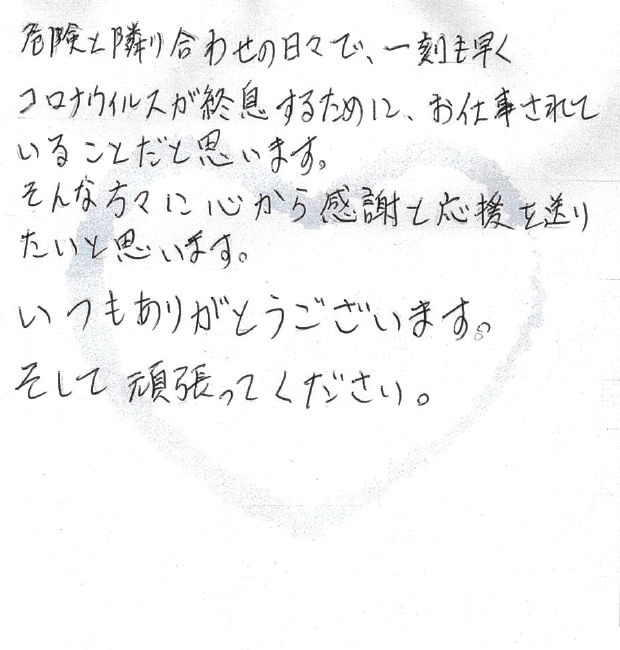 危険と隣り合わせの日々で、一刻も早く
コロナウイルスが終息するために、お仕事されて
いることだと思います。
そんな方々に心から感謝と応援を送り
たいと思います。
いつもありがとうございます。
そして頑張ってください。